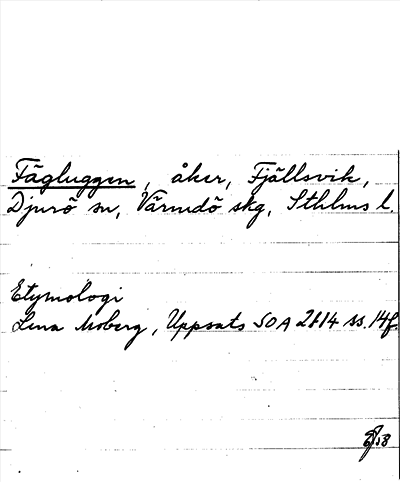 Fägluggen, åker, Fjällsvik,
Djurö sn, Värmdö skg, Sthlms l.
Etymologi
Lena Moberg, Uppsats SOA 2614 ss. 14f.